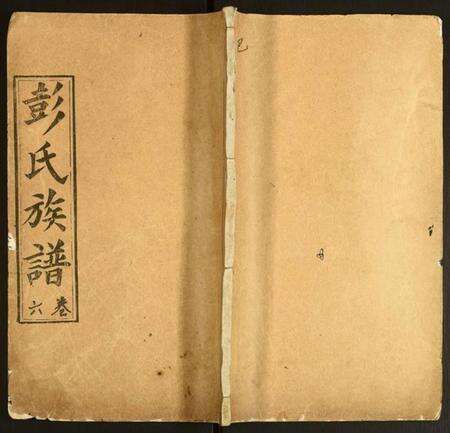 彭氏族譜
卷六